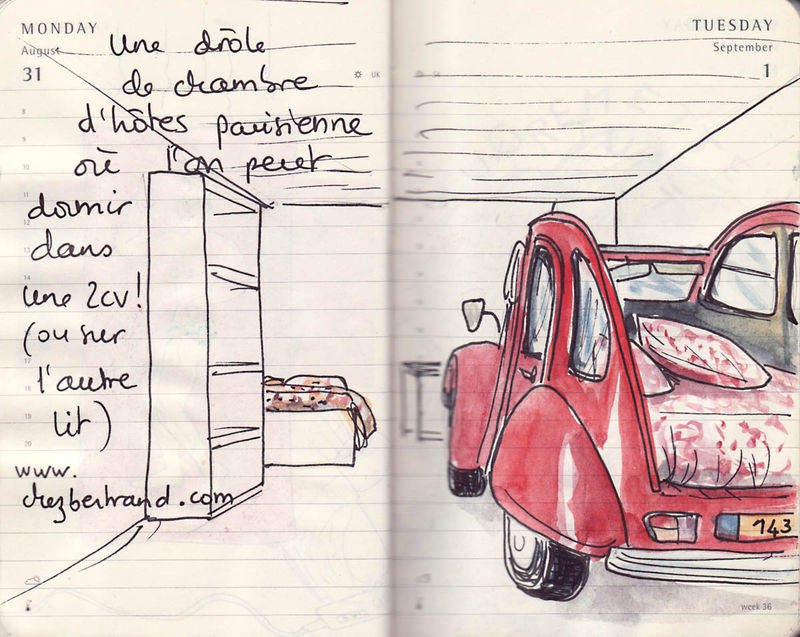 MONDAY
August
31
Une drôle
de chambre
d'hôtes parisienne
où l'on peut
dormir
dans
une 2cv!
(ou sur
l'autre
lit)
www.
chezbertrand.com
UK
8
9
10
14
17
18
19
20
TUESDAY
September
1
143
week 36